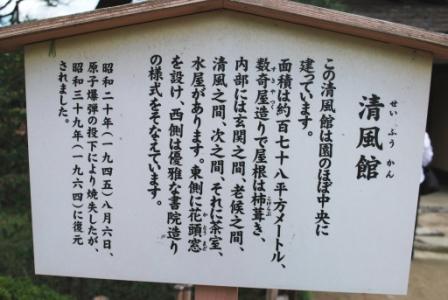 清風館
せいふうかん
この清風館は園のほぼ中央に
建っています。
面積は約百七十八平方メートル、
数奇屋造りで屋根は柿葺き、
すきやづく
こけらぶ
内部には玄関之間、老候之間、
清風之間、次之間、それに茶室、
水屋があります。東側に花頭窓
かとうまど
を設け、西側は優雅な書院造り
の様式をそなえています。
昭和二十年(一九四五)八月六日、
原子爆弾の投下により焼失したが、
昭和三十九年(一九六四)に復元
されました。